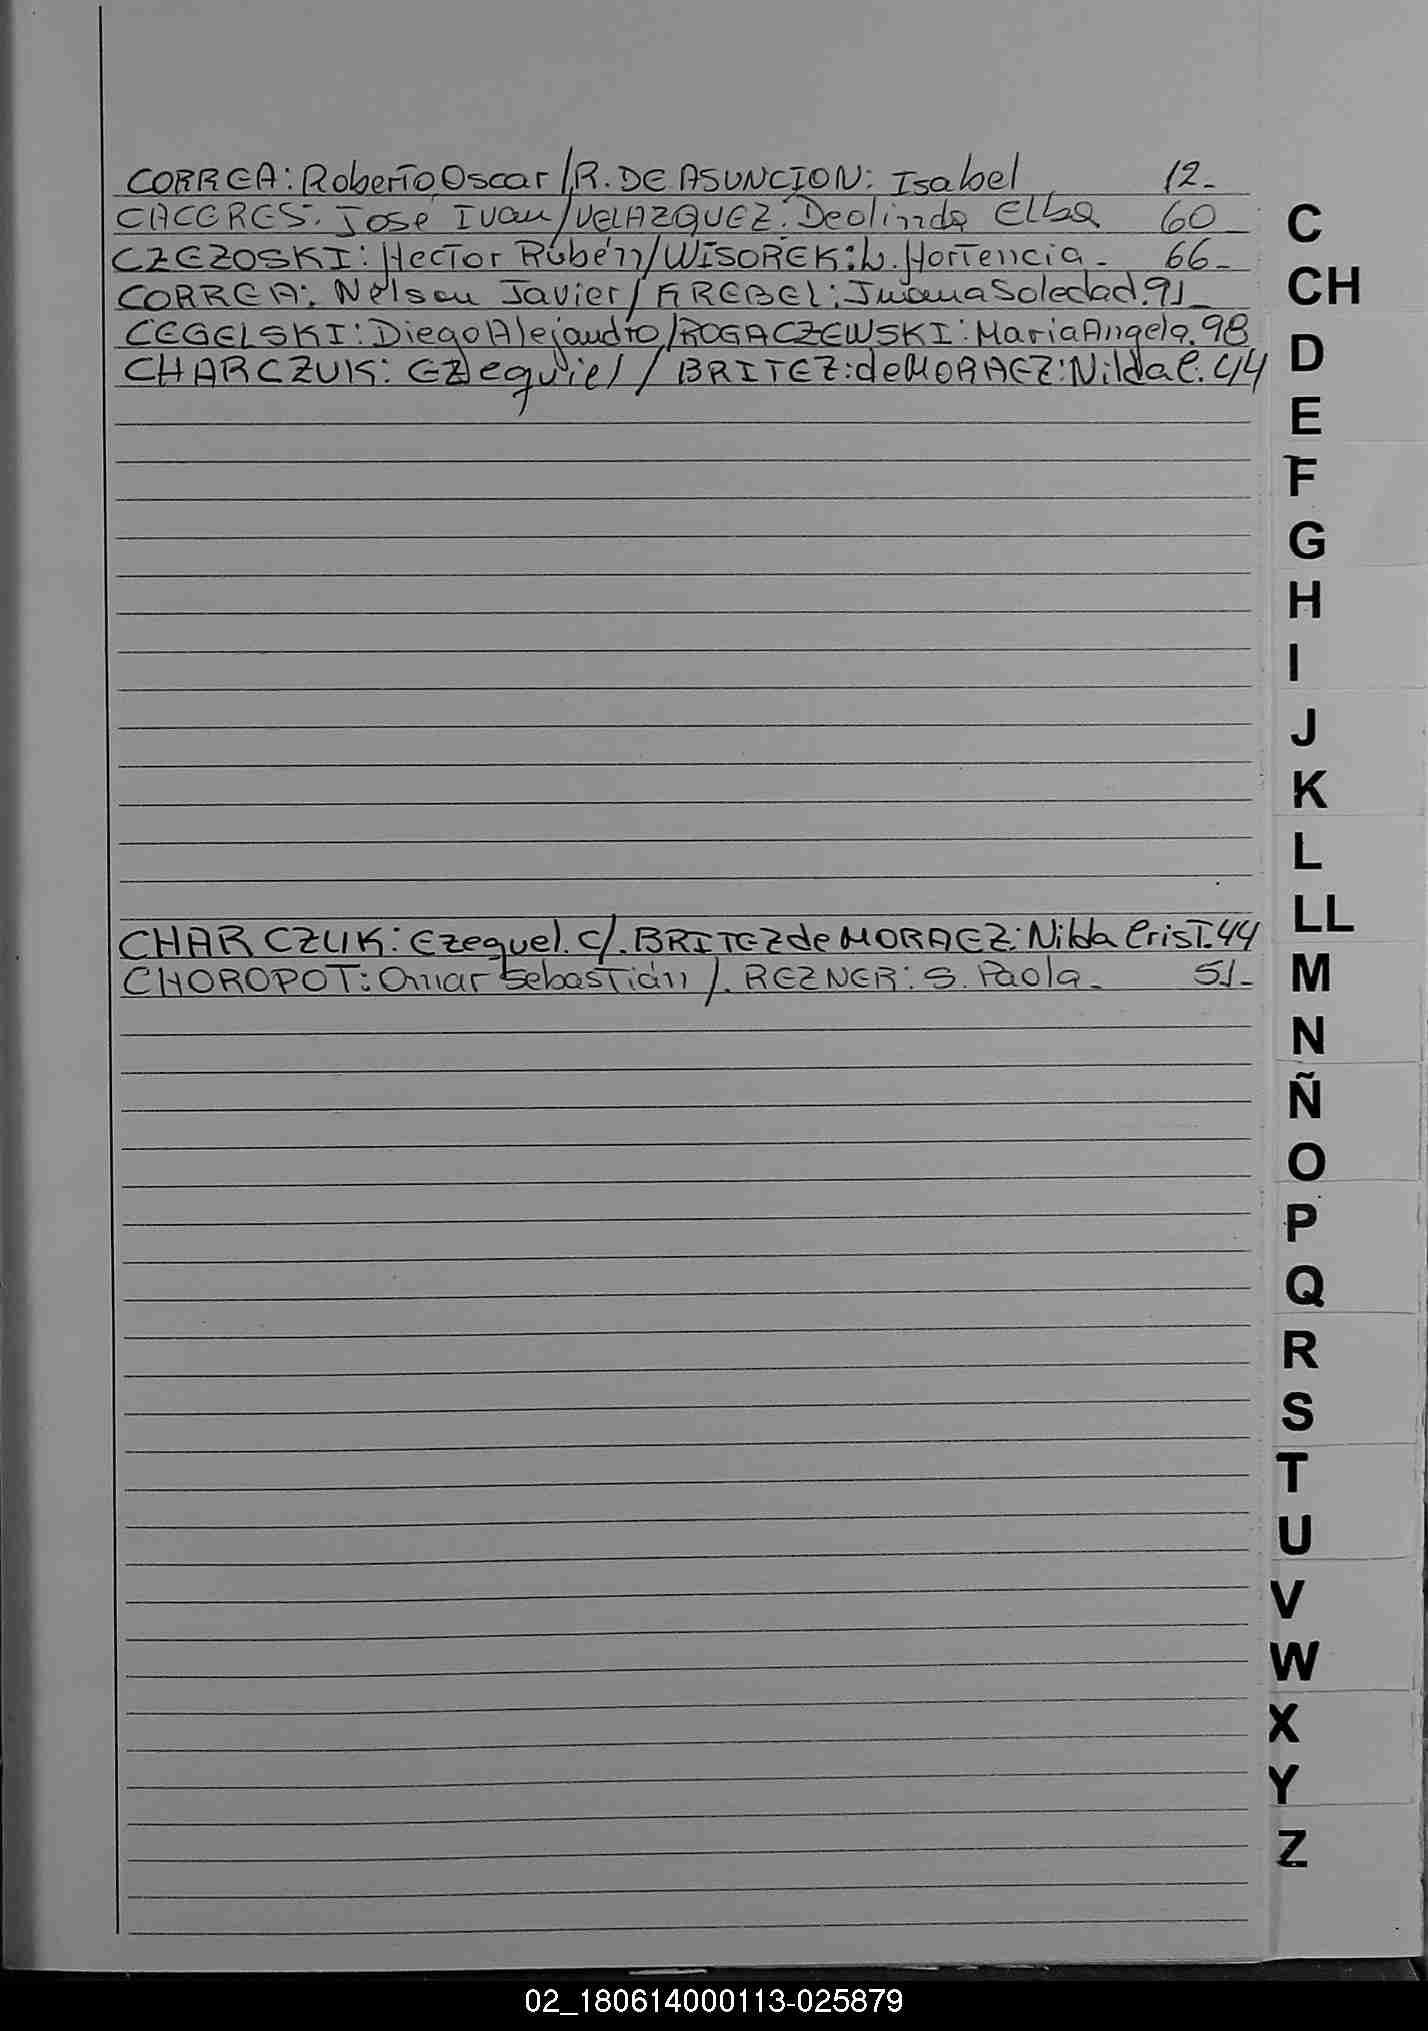 CORREA: Roberto Oscar /R. DE ASUNCION: Isabel 12-
CACERES: José Ivan/VELAZQUEZ: Deolinda Elba 60-
CZEZOSKI: Hector Rubén/WISOREK: L. Hortencia - 66-
CORREA: Nelson Javier/KREBEL: Jwana Soledad. 91-
CEGELSKI: Diego Alejandro/ROGACZEWSKI: Maria Angela. 98
CHARCZUK: Ezequiel / BRITEZ: de MORAEZ: Nilda C. 44
CHARCZUK: Ezequel. C/. BRITEZ de MORAEZ: Nilda Crist. 44
CHOROPOT: Omar Sebastián /. REZNER: S. Paola - 51-
C
CH
D
E
F
G
H
I
J
K
L
LL
M
N
Ñ
O
P
Q
R
S
T
U
V
W
X
Y
Z
02_180614000113-025879